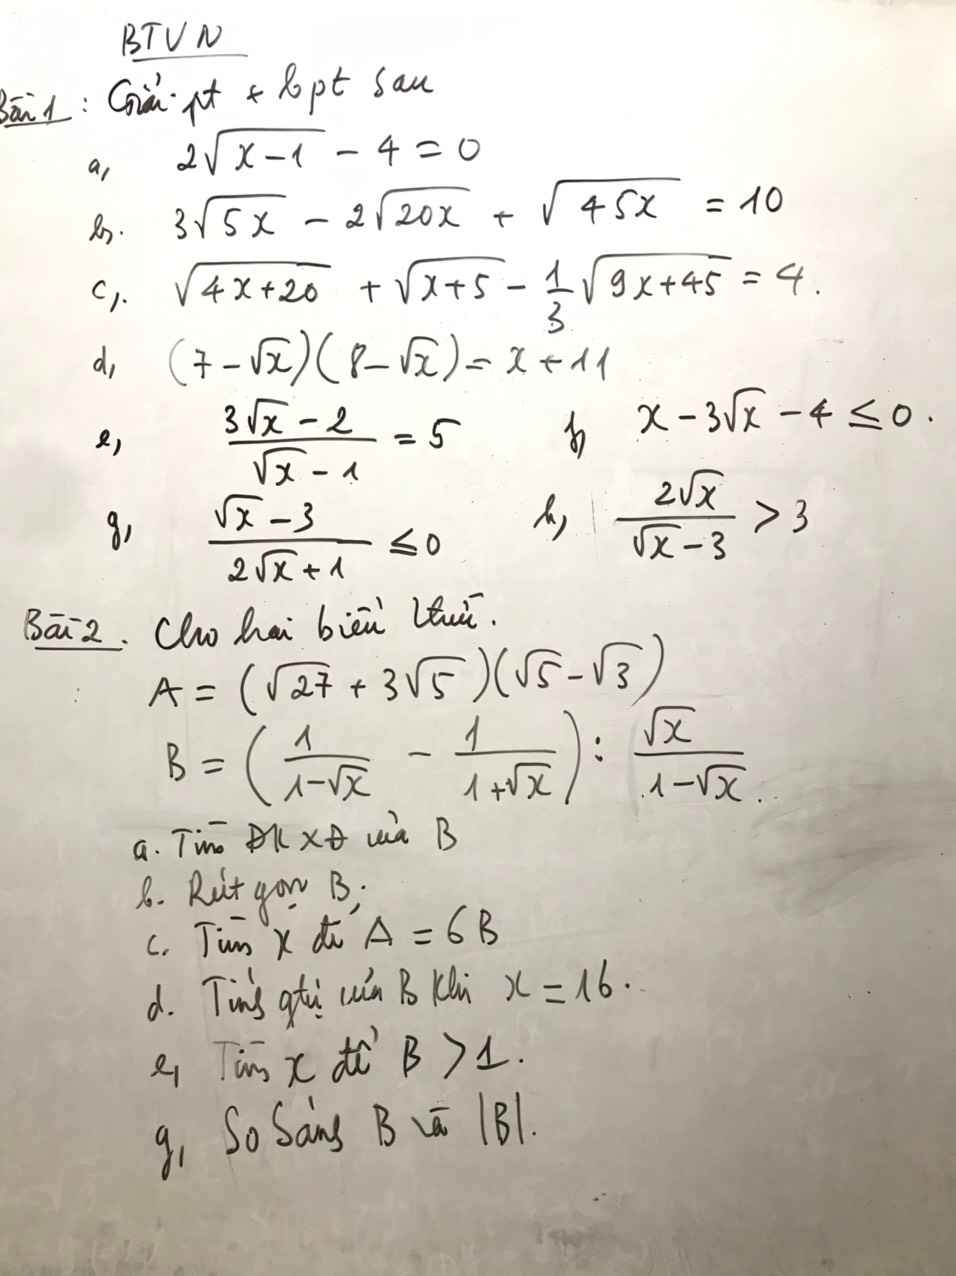 BTVN
Bài 1: Giải pt & bpt sau
a, 2√(x-1) - 4 = 0
b. 3√(5x) - 2√(20x) + √(45x) = 10
c,. √(4x+20) + √(x+5) - 1/3 √(9x+45) = 4.
d, (7-√x)(8-√x) = x + 11
e, (3√x - 2)/(√x - 1) = 5 f, x - 3√x - 4 ≤ 0.
g, (√x - 3)/(2√x + 1) ≤ 0 h, (2√x)/(√x - 3) > 3
Bài 2. Cho hai biểu thức.
A = (√27 + 3√5)(√5 - √3)
B = (1/(1-√x) - 1/(1+√x)) : √x/(1-√x).
a. Tìm ĐKXĐ của B
b. Rút gọn B;
c. Tìm x để A = 6B
d. Tính gtrị của B khi x = 16.
e, Tìm x để B > 1.
g, So Sánh B và |B|.